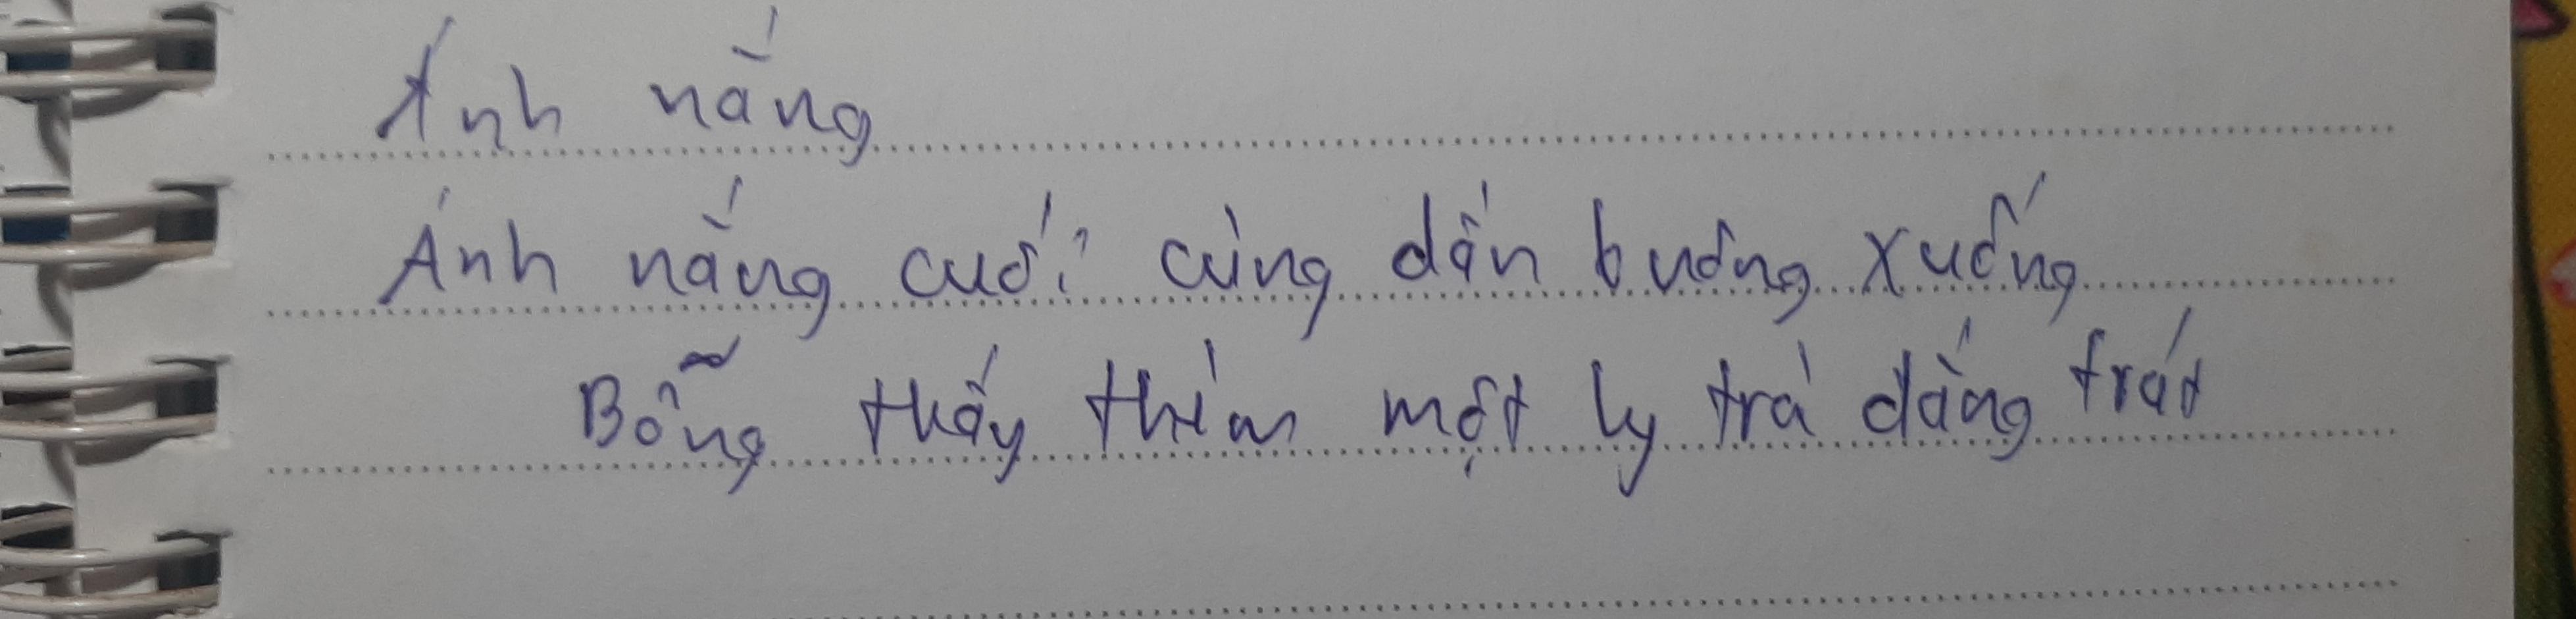 Ánh nắng
Ánh nắng cuối cùng dần buông xuống
Bỗng thấy thèm một ly trà đắng trát